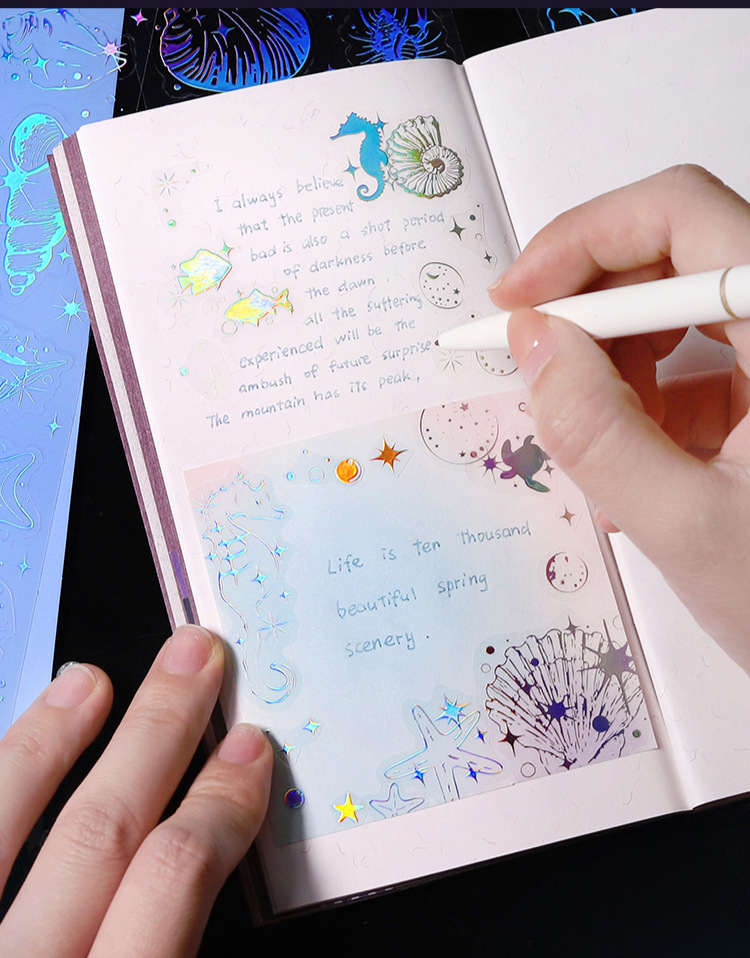 I always believe
that the present
bad is also a shot period
of darkness before
the dawn,
all the suffering
experienced will be the
ambush of future surprise
The mountain has its peak,
Life is ten thousand
beautiful spring
scenery.